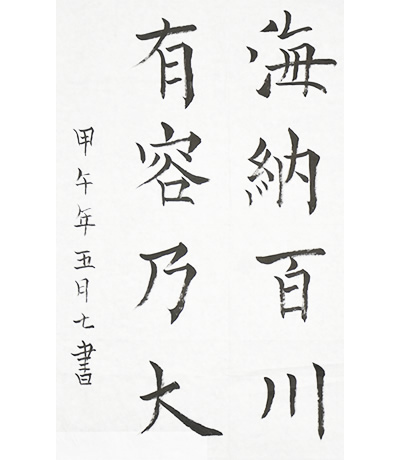 海納百川
有容乃大
甲午年五月七書